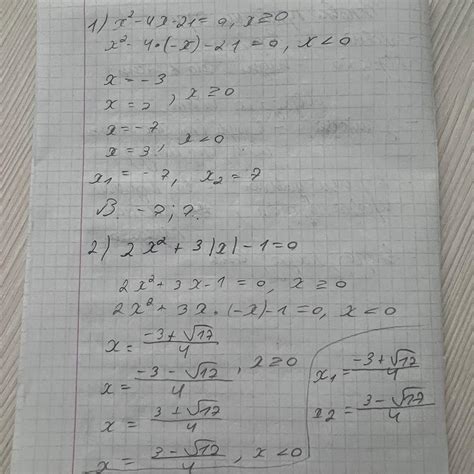 1) x² - 4x - 21 = 0, x ≥ 0
x² - 4 · (-x) - 21 = 0, x < 0
x = -3
x = 7 , x ≥ 0
x = -7
x = 3 , x < 0
x₁ = -7, x₂ = 7
В. -7; 7.
2) 2x² + 3|x| - 1 = 0
2x² + 3x - 1 = 0, x ≥ 0
2x² + 3x · (-x) - 1 = 0, x < 0
x = (-3 + √17)/4
x = (-3 - √17)/4 , x ≥ 0
x = (3 + √17)/4
x = (3 - √17)/4 , x < 0
x₁ = (-3 + √17)/4
x₂ = (3 - √17)/4